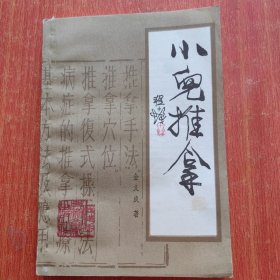 小兒推拿
金义成 著
推拿手法
推拿穴位
推拿復式操 法
病症的推拿 療
基本方法及應用